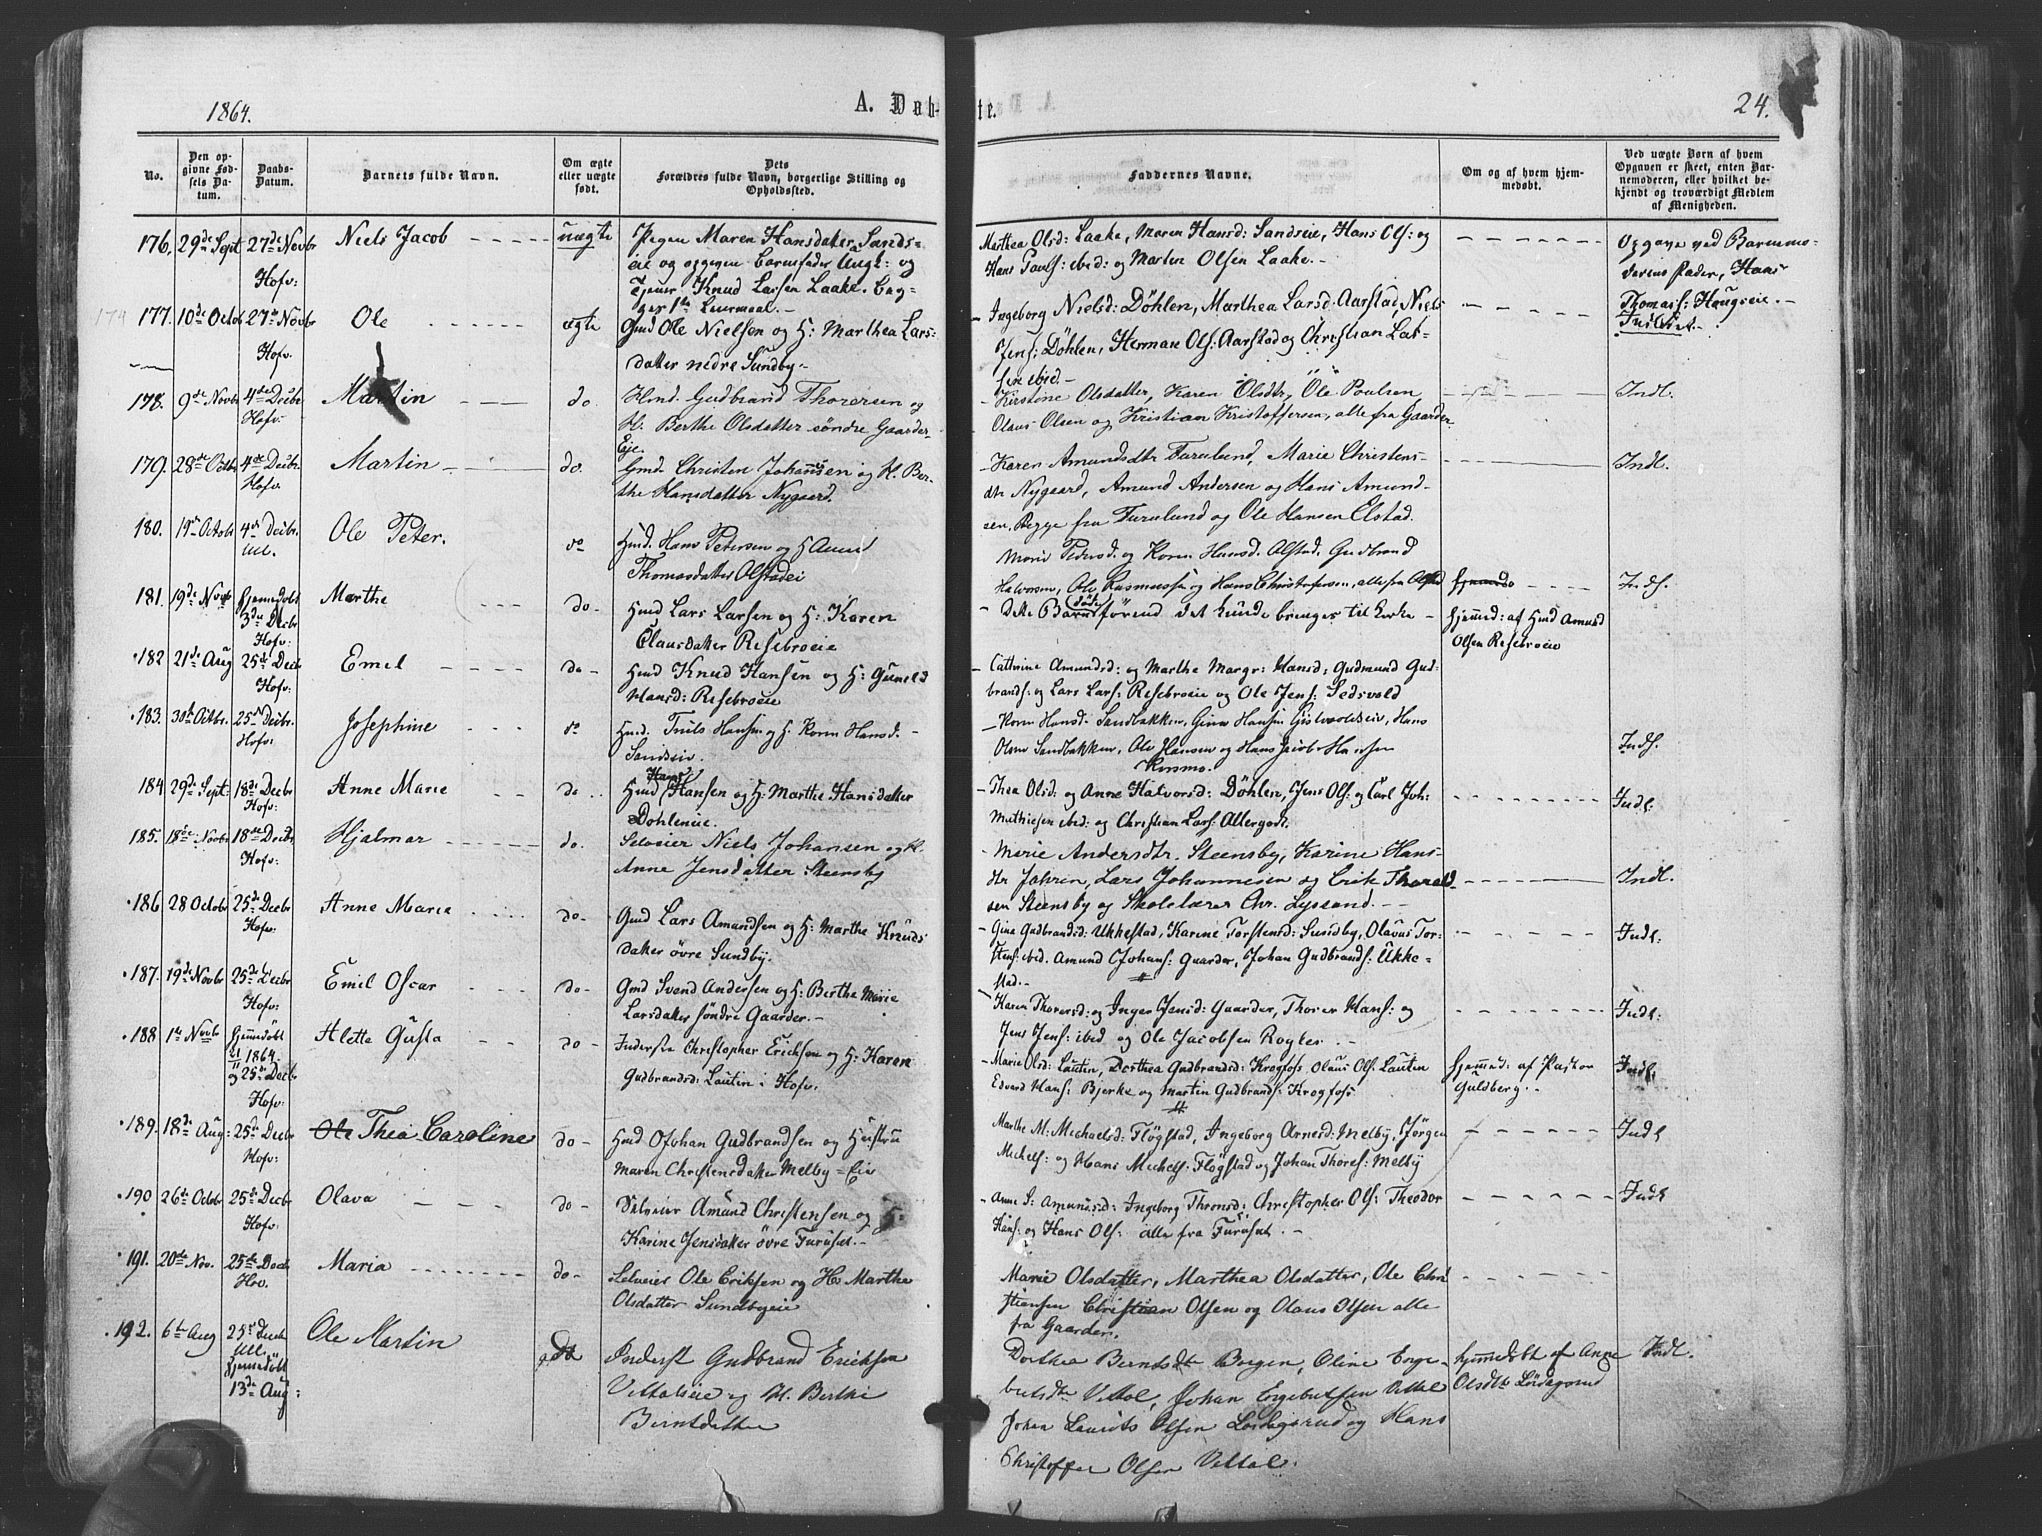 1864.
A. Dåb-
te.
24.
No.
Den op-
givne Fød-
sels Da-
tum.
Daabs-
Datum.
Barnets fulde Navn.
Om ægte
eller uægte
født.
Dets
Forældres fulde Navn, borgerlige Stilling og
Opholdssted.
Faddernes Navne.
Om og af hvem hjem-
medøbt.
Ved uægte Børn af hvem
Opgaven er skeet, enten Bar-
nemoderen, eller hvilket be-
kjendt og troværdigt Medlem
af Menigheden.
176. 29de Sept 27de Novbr
Hofv:
Niels Jacob
uægte
Pigen Maren Hansdatter Sands-
eie og opgiven Barnefader Ungk: og
Tjener Knud Larsen Laake. Beg-
ges 1ste Leiermaal.
Marthea Olsd: Laake, Maren Hansd: Sandseie, Hans Ols: og
Hans Pauls: ibid: og Marten Olsen Laake.
Opgave ved Barnemo-
derens Fader, Hans
Thomas: Haugseie.
Indl:
174 177. 10de Octob 27de Novbr
Hofv:
Ole
ægte
Gmd Ole Nielsen og H: Marthea Lars-
datter nedre Sundby
Ingeborg Nielsd: Döhlen, Marthea Larsd: Aarstad, Niels
Jens: Döhlen, Herman Ols: Aarstad og Christian Lar-
sen ibid.
178. 9de Novbr 4de Decbr
Hofv:
Martin
do.
Hmd. Gudbrand Thorersen og
H. Berthe Olsdatter søndre Gaarder-
Eje.
Kirstine Olsdatter, Karen Olsdtr, Ole Poulsen,
Olaus Olsen og Kristian Kristoffersen, alle fra Gaarder
Indl.
179. 28de Octbr 4de Decbr.
Hofv.
Martin
do.
Gmd. Christen Johansen og H. Ber-
the Hansdatter Nygaard.
Karen Amundsdtr Furulund, Marie Christens-
dtr Nygaard, Amund Andersen og Hans Amund-
sen, Begge fra Furulund og Ole Hansen Elstad.
Indl.
180. 19de Octob 4de Decbr.
Ull.
Ole Peter.
do
Hmd. Hans Petersen og H Anne
Thomasdatter Olstadei
Marie Pedersd. og Karen Hansd. Olstad, Gudbrand
Halvorsen, Ole Rasmussen og Hans Christofersen, alle fra Olstad
Indl.
181. 19de Novb Hjemmedöbt
3de Decbr
Hofv:
Marthe
do
Hmd Lars Larsen og H: Karen
Olausdatter Risebroeie
Dette Barn döde förend det kunde bringes til Kirke
Hjemmed: af Hmd Amund
Olsen Risebroeie
182 21de Aug 25de Decbr
Hofv:
Emil
do
Hmd Knud Hansen og H: Gunild
Hansd: Risebroeie
Cathrine Amundsd: og Marthe Margr: Hansd: Gudmund Gud-
brands: og Lars Lars: Risebroeie og Ole Jens: Sedsvold
183. 30de Octbr. 25de Decbr.
Hofv:
Josephine
do
Hmd. Truls Hansen og H. Karen Hansd.
Sandseie.
Karen Hansd. Sandbakken, Gina Hansen Gislevoldseie, Hans
Olsen Sandbakken, Ole Hansen og Hans Jacob Hansen
Kosmo.
Indl.
184 29de Sept: 18de Decbr
Hofv:
Anne Marie
do
Hmd Hans Hansen og H: Marthe Hansdatter
Dohleneie.
Thea Olsd. og Anne Halvorsd: Döhlen, Jens Ols: og Carl Joh:
Mathiesen ibid: og Christian Lars: Allergodt.
Indl:
185. 18de Novbr 18de Decbr
Hofv:
Hjalmar
do.
Selveier Niels Johansen og H.
Anne Jensdatter Steensby
Marie Andersdtr. Steensby, Karine Hans-
dtr Jahren, Lars Johannesen og Erik Thorald-
sen Steensby og Skolelærer Chr. Lyssand.
Indl.
186 28 Octobr 25de Decbr
Hofv:
Anne Maria
do
Gmd Lars Amundsen og H: Marthe Knuds
datter övre Sundby.
Gina Gudbrandsd: Ukkestad, Karine Torstensd: Sundby, Olavus Tor-
stens: ibid. Amund Johans: Gaarder, Johan Gudbrands: Ukke-
stad.
Indl:
187. 19de Novbr 25de Decbr
Hofv:
Emil Oscar
do
Gmd Svend Andersen og H: Berthe Marie
Larsdatter söndre Gaarder.
Karen Thorersd: og Inger Jensd: Gaarder, Thorer Hans: og
Jens Jens: ibid og Ole Jacobsen Rogter.
Indl:
188 1te Novb Hjemmedöbt
21/11 1864.
og 25de Decbr
Hofv:
Alette Gusta
do
Inderste Christopher Ericksen og H: Karen
Gudbrandsd: Lautin i Hofv.
Marie Olsd: Lautin, Dorthea Gudbrandsd: Krogfoss, Olaus Ols: Lautin
Edvard Hans: Bjerke og Martin Gudbrands: Krogfoss.
Hjemmed: af Pastor
Guldberg.
Indl:
189. 18de Aug: 25de Decbr
Hofv:
Ole Thea Caroline
do
Hmd Johan Gudbrandsen og Hustru
Maren Christensdatter Melby-Eie
Marthe M: Michaelsd: Flögstad, Ingeborg Arnesd: Melby, Jörgen
Michels: og Hans Michels: Flögstad og Johan Thores: Melby
Indl
190 26de Octobr 25de Decbr
Hofv:
Olava
do
Selveier Amund Christensen og H:
Karine Jensdatter övre Furuset.
Anne S: Amundsd: Ingeborg Thronsd: Christopher Ols: Theodor
Hans: og Hans Ols: alle fra Furuset.
Indl
191. 20de Nov. 25de Decb
Hov.
Maria
do
Selveier Ole Eriksen og H: Marthe
Olsdatter Sundbyeie
Marie Olsdatter, Marthea Olsdatter, Ole Chri
stiansen Christian Olsen og Olaus Olsen alle
fra Gaarder.
192. 6te Aug 25de Decb
Ull.
Hjemmedöbt
13de Aug:
Ole Martin
do
Inderst Gudbrand Ericksen
Vettaleie og H. Berthe
Berntsdatter
Dorthea Berntsdtr Borgen, Oline Enge-
bretsdtr Vettal, Johan Engebretsen Vettal
Johan Laurits Olsen Lördagsrud og Hans
Christoffer Olsen Vettal.
hjemmedöbt af Anne
Olsdtr Lördagsrud
Indl.